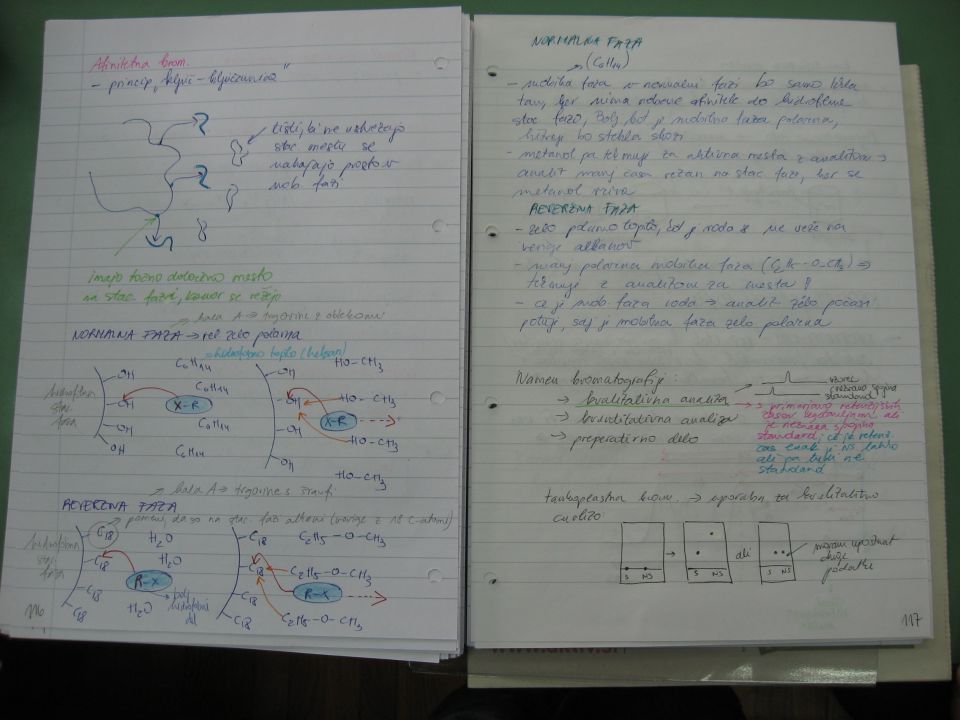 Afinitetna krom.
- princip "ključ - ključavnica"
tisti, ki ne ustrezajo
stac mestu se
nahajajo prosto v
mob. fazi
imajo točno določeno mesto
na stac. fazi, kamor se vežejo
hala A → trgovine z oblekami
NORMALNA FAZA → rel zelo polarna
hidrofobno topilo (heksan)
hidrofilna
stac.
faza
OH
OH
OH
OH
C6H14
C6H14
C6H14
C6H14
X-R
OH
OH
OH
OH
HO-CH3
HO-CH3
HO-CH3
HO-CH3
X-R
hala A → trgovine s
REVERZNA FAZA
pomeni, da so na stac. fazi alkani (verige z 18 C-atomi)
hidrofobna
stac.
faza
C18
C18
C18
C18
H2O
H2O
H2O
R-X
bolj
hidrofobni
del
C18
C18
C18
C18
C2H5-O-CH3
C2H5-O-CH3
C2H5-O-CH3
R-X
116
NORMALNA FAZA
(C6H14)
- mobilna faza v normalni fazi bo samo
ker nima nobene afinitete do hidrofilne
stac fazo, Bolj kot je mobilna faza polarna,
hitreje bo stekla skozi
- metanol pa tekmuje za aktivna mesta z analitom →
analit manj časa vezan na stac fazi, ker se
metanol
REVERZNA FAZA
- zelo polarno topilo, kot je voda se ne veže na
verige alkanov
- manj polarna mobilna faza (C2H5-O-CH3) ⇒
tekmuje z analitom za mesta
- če je mob. faza voda → analit zelo počasi
potuje, saj je mobilna faza zelo polarna
Namen kromatografije:
→ kvalitativna analiza
→ kvantitativna analiza
→ preparativno delo
vzorec
standard
s primerjavo retenzijskih
časov ugotavljamo ali
je neznana spojina
standard; če je retenz.
čas enak je NS lahko
ali pa tudi ne
standard
tankoplastna krom. → uporabna za kvalitativno
analizo
S NS
→
S NS
ali
S NS
moram uporabiti
druge
podatke
117